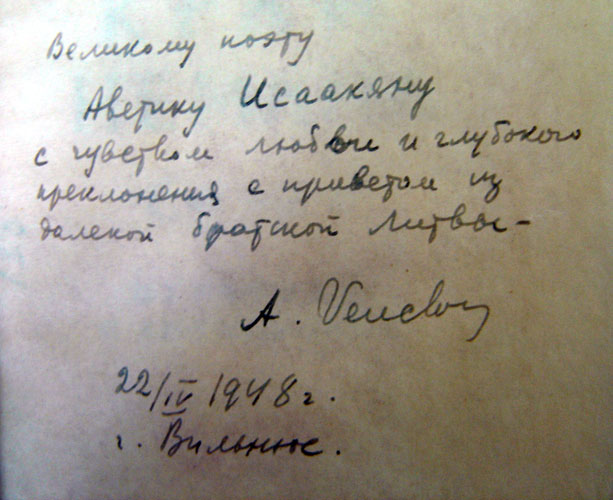 Великому поэту
Аветику Исаакяну
с чувством любви и глубокого
преклонения с приветом из
далекой братской Литвы –
A. Venclova
22/IV 1948 г.
г. Вильнюс.